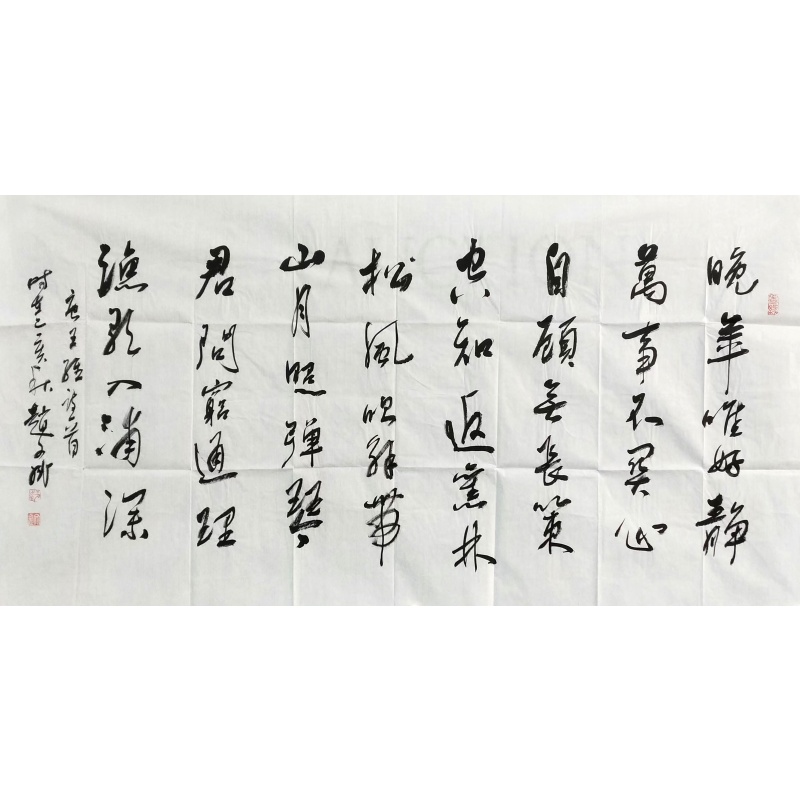 晚年唯好静
萬事不関心
自顧無長策
空知返舊林
松風吹解帶
山月照弹琴
君問窮通理
漁歌入浦深
唐王維詩一首
時在己亥秋趙